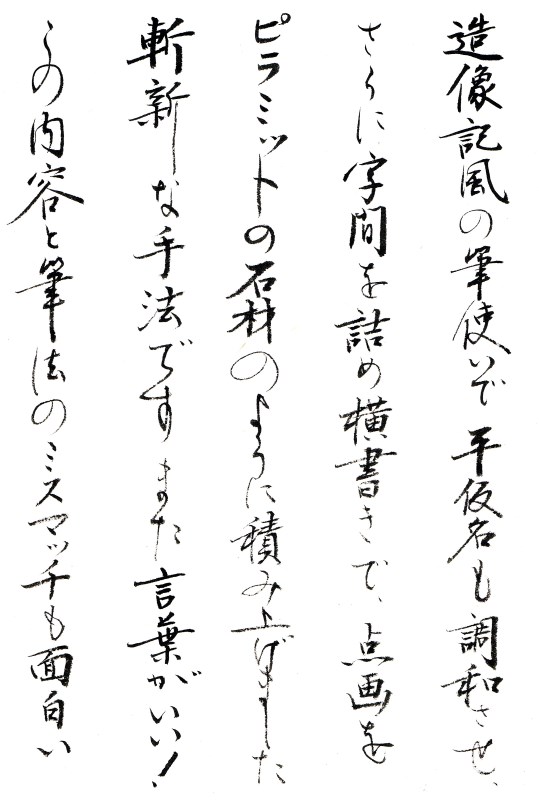 造像記風の筆使いで平仮名も調和させ、
さらに字間を詰め横書きで、点画を
ピラミットの石材のように積み上げました
斬新な手法ですまた言葉がいい!
この内容と筆法のミスマッチも面白い